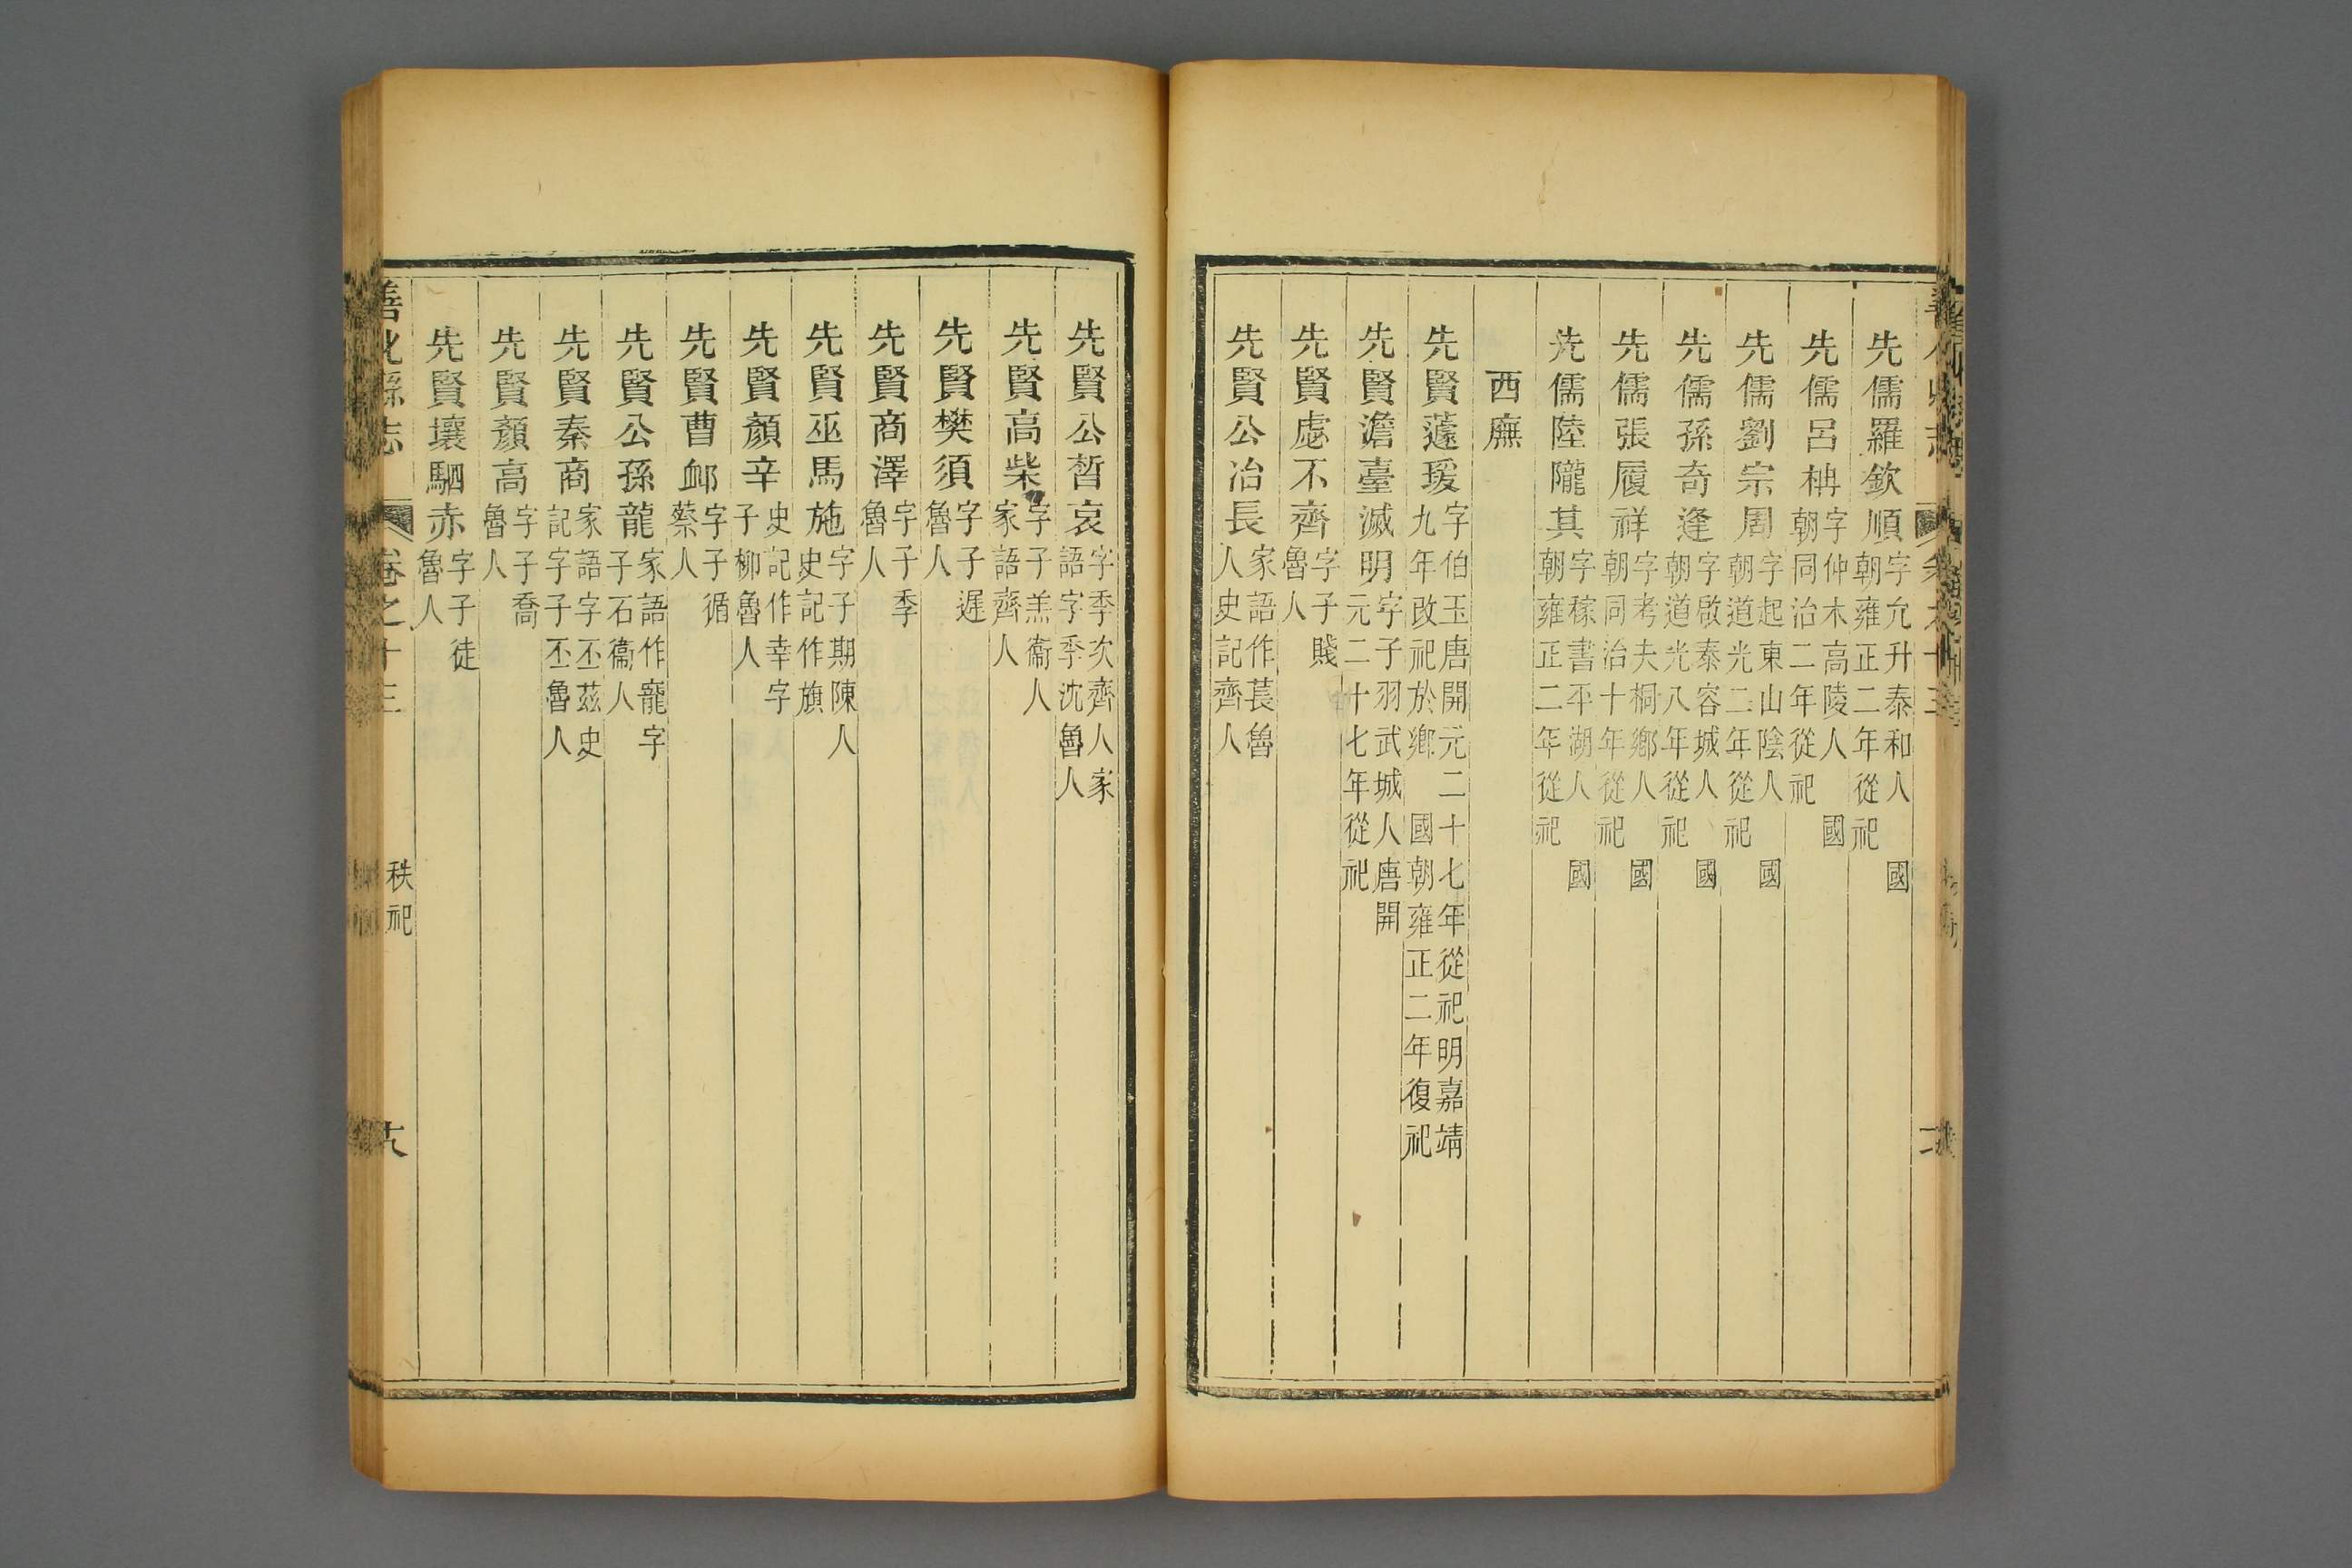 先儒羅欽順字允升泰和人　國朝雍正二年從祀
先儒呂柟字仲木高陵人　國朝同治二年從祀
先儒劉宗周字起東山陰人　國朝道光二年從祀
先儒孫奇逢字啟泰容城人　國朝道光八年從祀
先儒張履祥字考夫桐鄉人　國朝同治十年從祀
先儒陸隴其字稼書平湖人　國朝雍正二年從祀
西廡
先賢蘧瑗字伯玉唐開元二十七年從祀明嘉靖九年改祀於鄉　國朝雍正二年復祀
先賢澹臺滅明字子羽武城人唐開元二十七年從祀
先賢宓不齊字子賤魯人
先賢公冶長家語作萇魯人史記齊人
先賢公晳哀字季次齊人家語字季沈魯人
先賢高柴字子羔衞人家語齊人
先賢樊須字子遲魯人
先賢商澤字子季魯人
先賢巫馬施字子期陳人史記作旗
先賢顏辛史記作幸字子柳魯人
先賢曹䘏字子循蔡人
先賢公孫龍家語作寵字子石衞人
先賢秦商家語字丕茲史記字子丕魯人
先賢顏高字子喬魯人
先賢壤駟赤字子徒魯人
善化縣志　卷之十三　秩祀